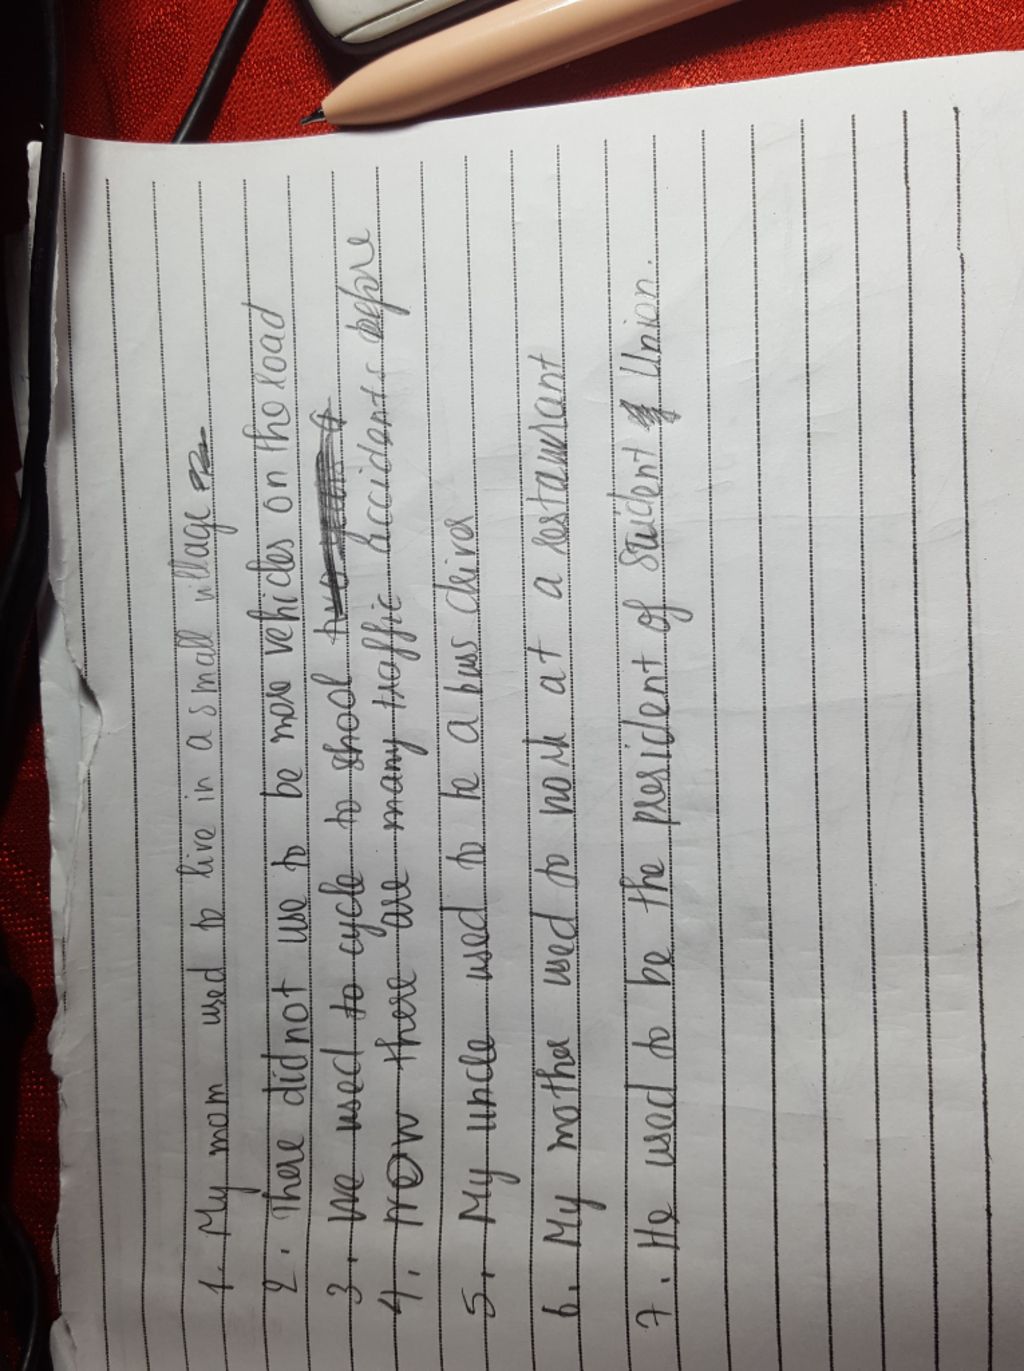 1. My mom used to live in a small village
2. There did not use to be more vehicles on the road
3. We used to cycle to shool
4. Now there are many traffic accidents before
5. My uncle used to be a bus driver
6. My mother used to work at a restaurant
7. He used to be the president of student Union.